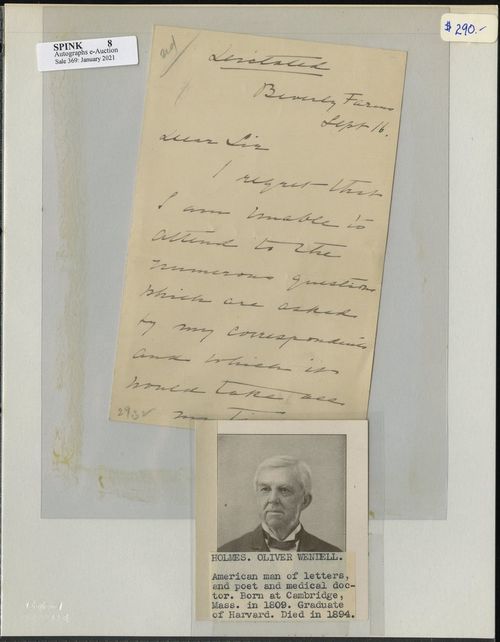 SPINK 8
Autographs e-Auction
Sale 369: January 2021
$290.-
Dictated
Beverly Farms
Sept 16.
Dear Sir
I regret that
I am unable to
attend to the
numerous questions
which are asked
by my correspondents
and which it
would take all
my
HOLMES. OLIVER WENDELL.
American man of letters,
and poet and medical doc-
tor. Born at Cambridge,
Mass. in 1809. Graduate
of Harvard. Died in 1894.